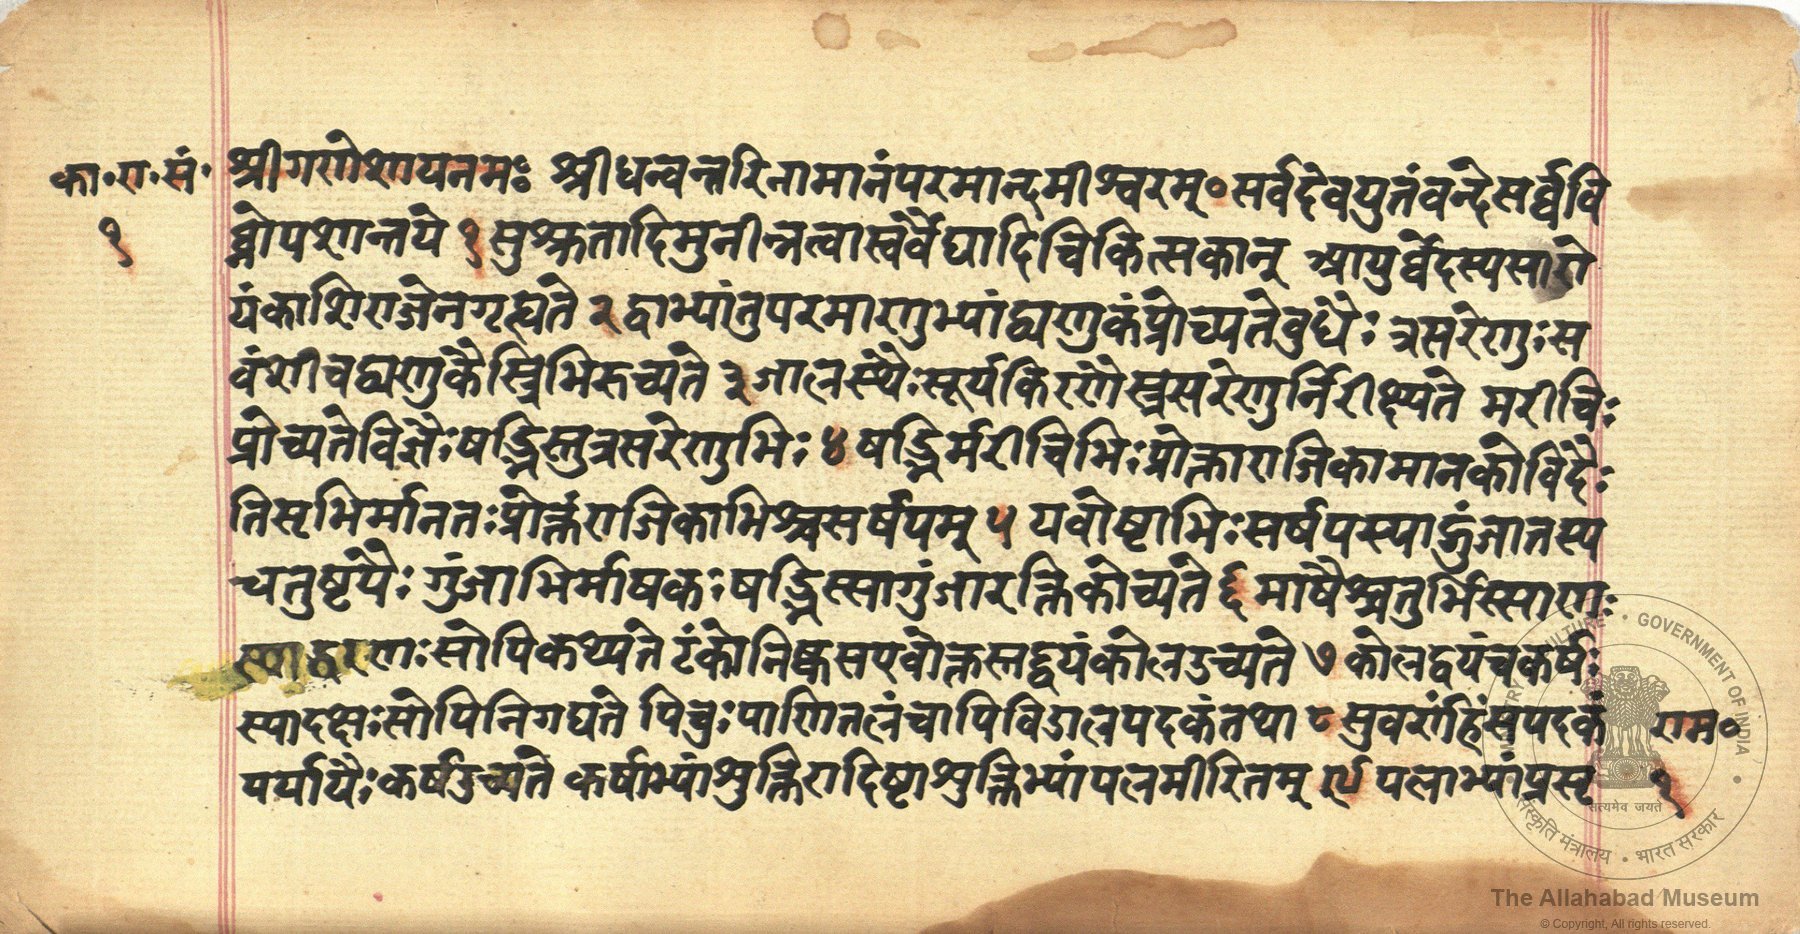 का॰रा॰सं॰
१
श्रीगणेशायनमः श्रीधन्वन्तरिनामानंपरमान्दमीश्वरम्॰सर्वदेवयुतंवन्देसर्व्ववि
घ्नोपशान्तये १ सुश्रुतादिमुनीन्नत्वास्वर्वैद्यादिचिकित्सकान् आयुर्व्वेदस्यसारो
यंकाशिराजेनगृह्यते २ द्वाभ्यांतुपरमाणुभ्यांद्व्यणुकंप्रोच्यतेबुधैः त्रसरेणुःस
वंशीचद्व्यणुकैस्त्रिभिरुच्यते ३ जालस्थैःसूर्यकिरणैस्त्रसरेणुर्निरीक्ष्यते मरीचिः
प्रोच्यतेविज्ञैःषड्भिस्तुत्रसरेणुभिः ४ षड्भिर्मरीचिभिःप्रोक्ताराजिकामानकोविदैः
तिसृभिर्मानतःप्रोक्तंराजिकाभिश्चसर्षपम् ५ यवोष्टाभिःसर्षपस्याद्गुंजातस्य
चतुष्टयैः गुंजाभिर्माषकःषड्भिस्सागुंजारक्तिकोच्यते ६ माषैश्चतुर्भिस्साणः
स्याद्धरणःसोपिकथ्यते टंकोनिष्कसएवोक्तस्तद्द्वयंकोलउच्यते ७ कोलद्वयंचकर्षः
स्यादक्षःसोपिनिगद्यते पिचुःपाणितलंचापिविडालपदकंतथा ८ सुवर्णंहंसपदकं
पर्यायैःकर्षउच्यते कर्षाभ्यांशुक्तिरादिष्टाशुक्तिभ्यांपलमीरितम् ९ पलाभ्यांप्रसृ
राम॰
१
MINISTRY OF CULTURE • GOVERNMENT OF INDIA
सत्यमेव जयते
संस्कृति मंत्रालय • भारत सरकार
The Allahabad Museum
© Copyright, All rights reserved.